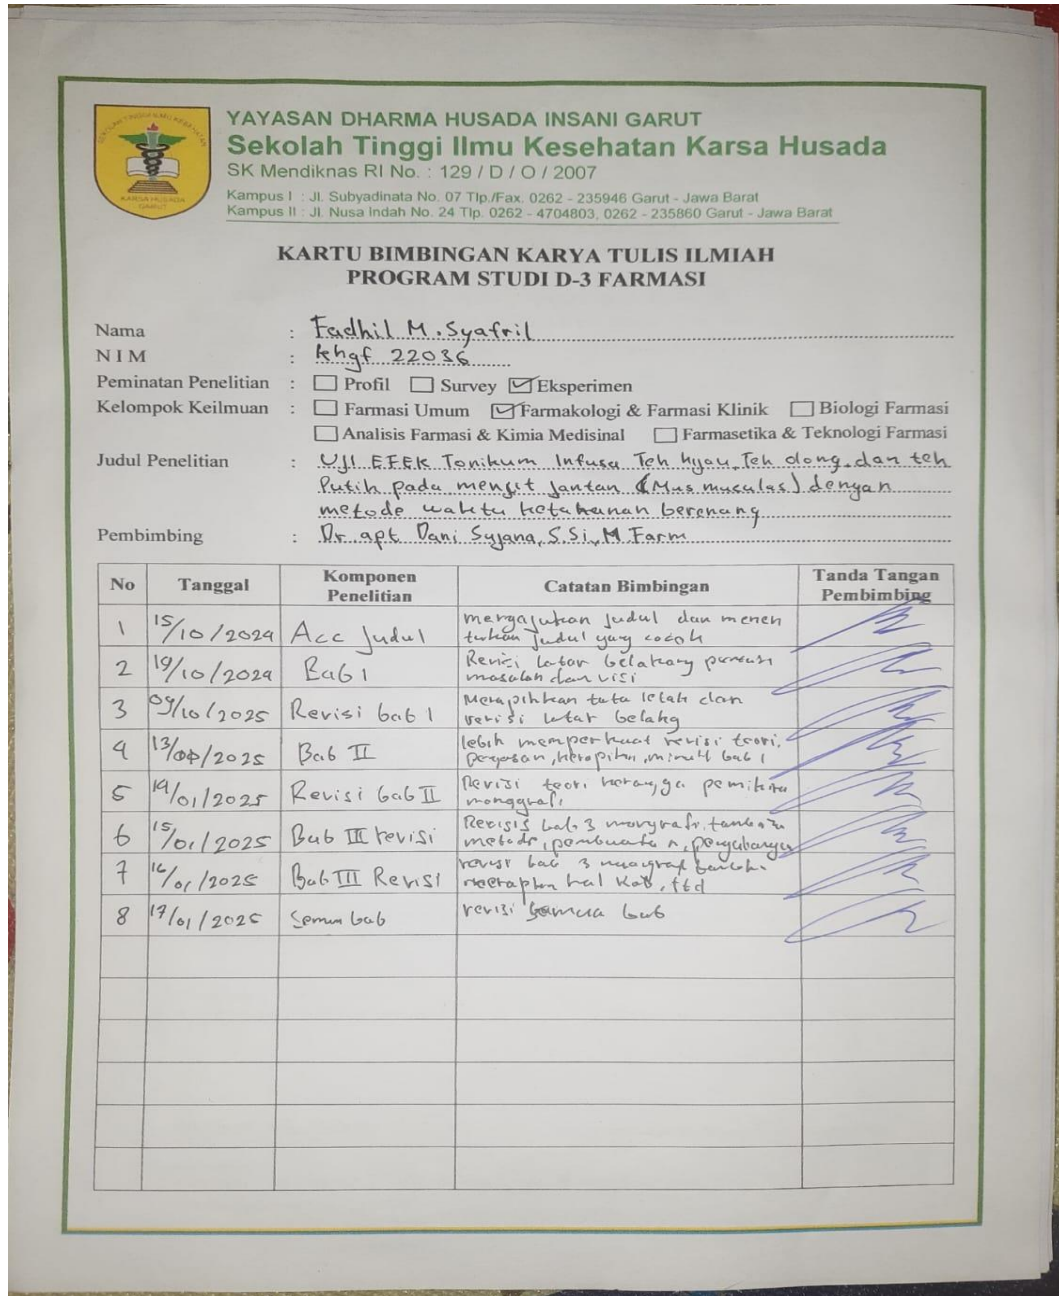 SEKOLAH TINGGI ILMU KESEHATAN
KARSA HUSADA
GARUT
YAYASAN DHARMA HUSADA INSANI GARUT
Sekolah Tinggi Ilmu Kesehatan Karsa Husada
SK Mendiknas RI No. : 129 / D / O / 2007
Kampus I : Jl. Subyadinata No. 07 Tlp./Fax. 0262 - 235946 Garut - Jawa Barat
Kampus II : Jl. Nusa Indah No. 24 Tlp. 0262 - 4704803, 0262 - 235860 Garut - Jawa Barat
KARTU BIMBINGAN KARYA TULIS ILMIAH
PROGRAM STUDI D-3 FARMASI
Nama : Fadhil M. Syafril
N I M : khgf 22036
Peminatan Penelitian : Profil Survey Eksperimen
Kelompok Keilmuan : Farmasi Umum Farmakologi & Farmasi Klinik Biologi Farmasi
Analisis Farmasi & Kimia Medisinal Farmasetika & Teknologi Farmasi
Judul Penelitian : UJI EFEK Tonikum Infusa Teh hijau, Teh olong, dan teh
Putih pada mencit Jantan (Mus musculas) dengan
metode waktu ketahanan berenang
Pembimbing : Dr. apt. Dani Sujana, S.Si, M.Farm
No Tanggal Komponen Penelitian Catatan Bimbingan Tanda Tangan Pembimbing
1 15/10/2024 Acc Judul mengajukan Judul dan menen
tukan Judul yang cocok
2 19/10/2024 Bab 1 Revisi latar belakang
masalah dan visi
3 09/10/2025 Revisi bab 1 Merapihkan tata letak dan
revisi latar belakg
4 13/ /2025 Bab II lebih memperkuat revisi teori,
bab 1
5 14/01/2025 Revisi bab II Revisi teori
6 15/01/2025 Bab III revisi bab 3
metode,
7 16/01/2025 Bab III Revisi revisi bab 3
hal
8 17/01/2025 Semua bab revisi Semua bab